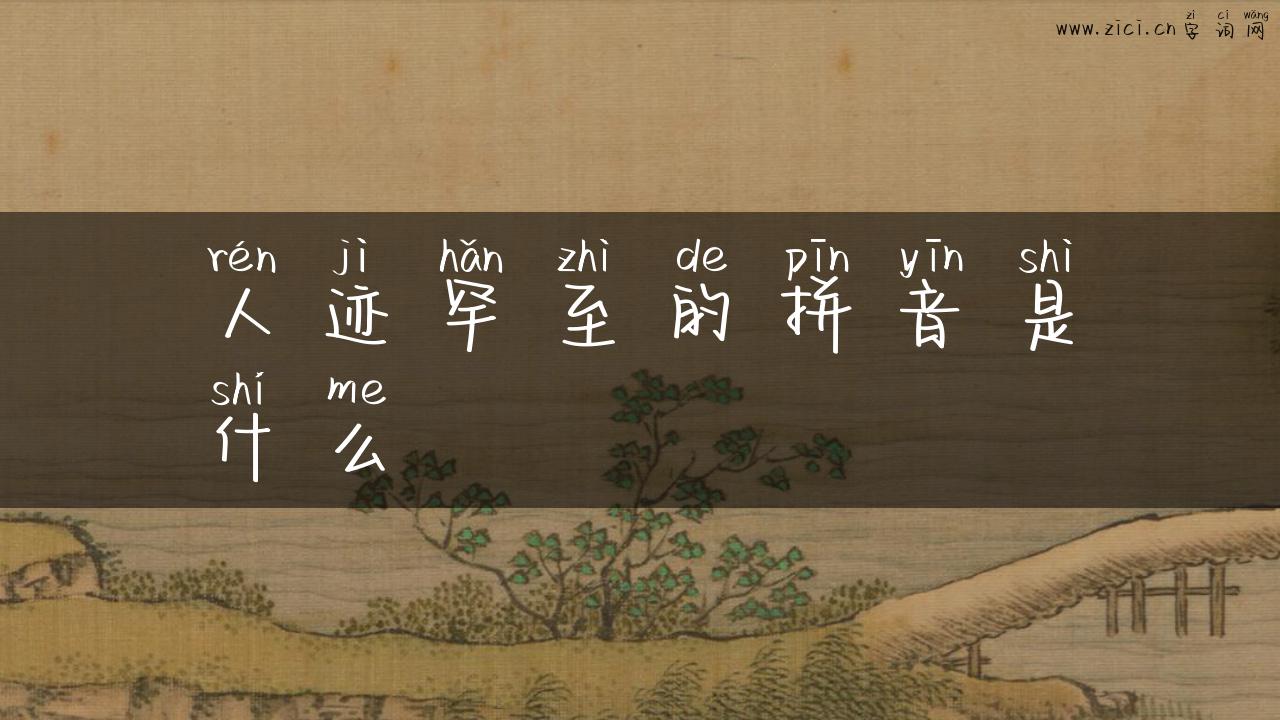 zì cí wǎng
www.zici.cn 字词网
rén jì hǎn zhì de pīn yīn shì
人迹罕至的拼音是
shí me
什么